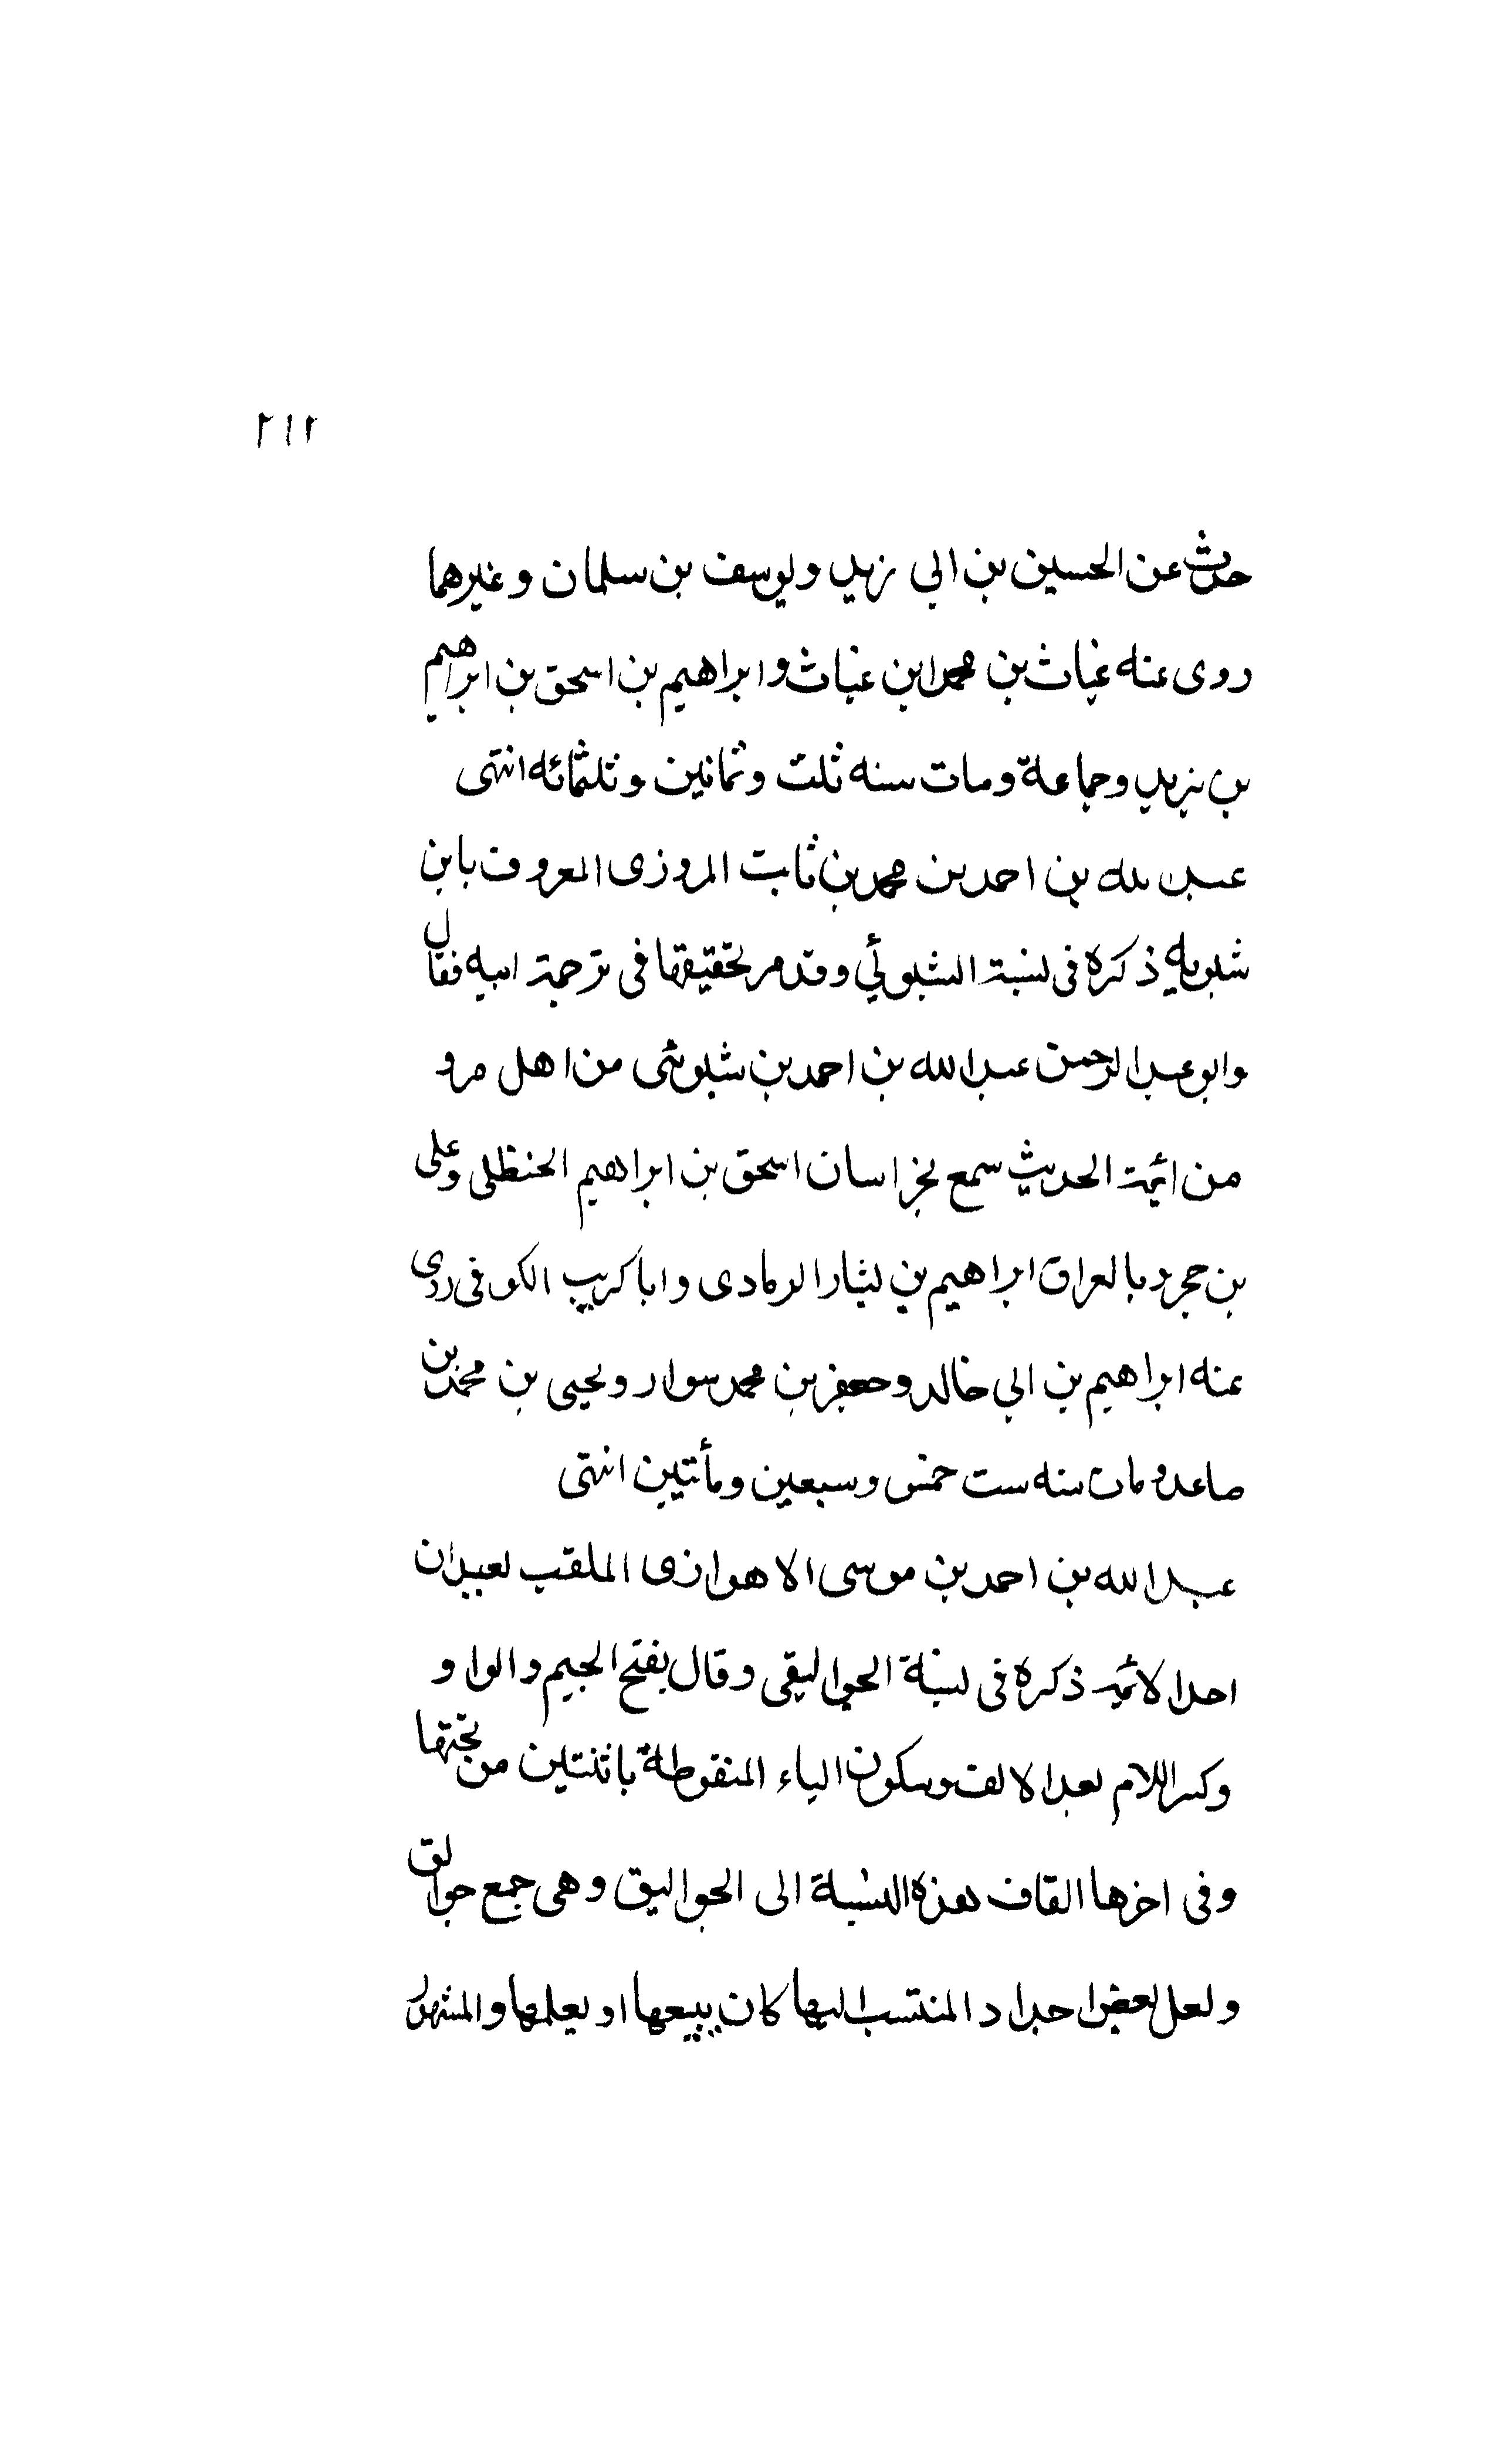 ٢١٢
حدث عن الحسين بن ابي زيد ويوسف بن سلمان وغيرهما
روى عنه غياث بن محمد ابن غياث وابراهيم بن اسحق بن ابراهيم
بن يزيد وجماعة ومات سنه ثلث وثمانين وثلثمائه انتهى
عبد الله بن احمد بن محمد بن ثابت المروزى المعروف بابن
شبويه ذكره فى نسبة الشبوئي وقدم تحقيقها فى ترجمة ابيه فقال
وابو عبد الرحمن عبد الله بن احمد بن شبوئى من اهل مرو
من ائمة الحديث سمع بخراسان اسحق بن ابراهيم الحنظلى وعلى
بن حجر وبالعراق ابراهيم بن بشار الرمادى وابا كريب الكوفى روى
عنه ابراهيم بن ابي خالد وجعفر بن محمد سوار ويحيى بن محمد بن
صاعد ومات سنه ست خمس وسبعين ومأتين انتهى
عبد الله بن احمد بن موسى الاهوازى الملقب لعبدان
احد الائمة ذكره فى نسبة الجواليقى وقال بفتح الجيم والواو و
وكسر اللام بعد الالف وسكون الياء المنقوطة باثنتين من تحتها
وفى اخرها القاف هذه النسبة الى الجواليق وهى جمع جوالق
ولعل بعض اجداد المنتسب اليها كان يبيعها او يعلمها والمشهور